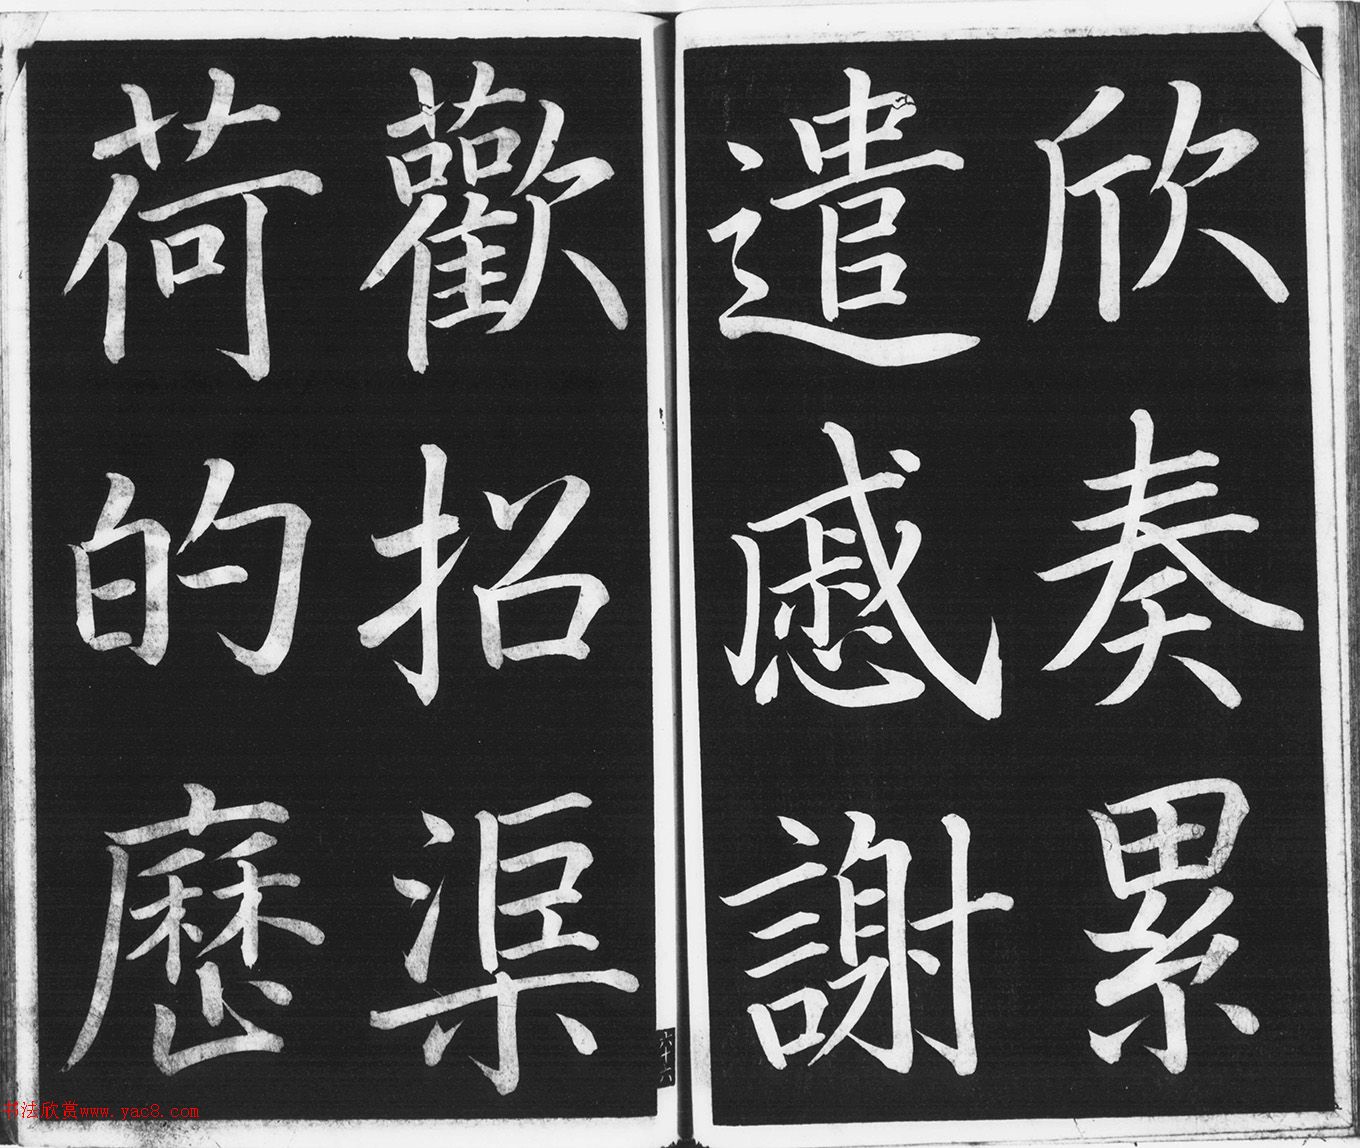 欣奏累
遣慼謝
歡招渠
荷的歷
六十六
书法欣赏www.yac8.com